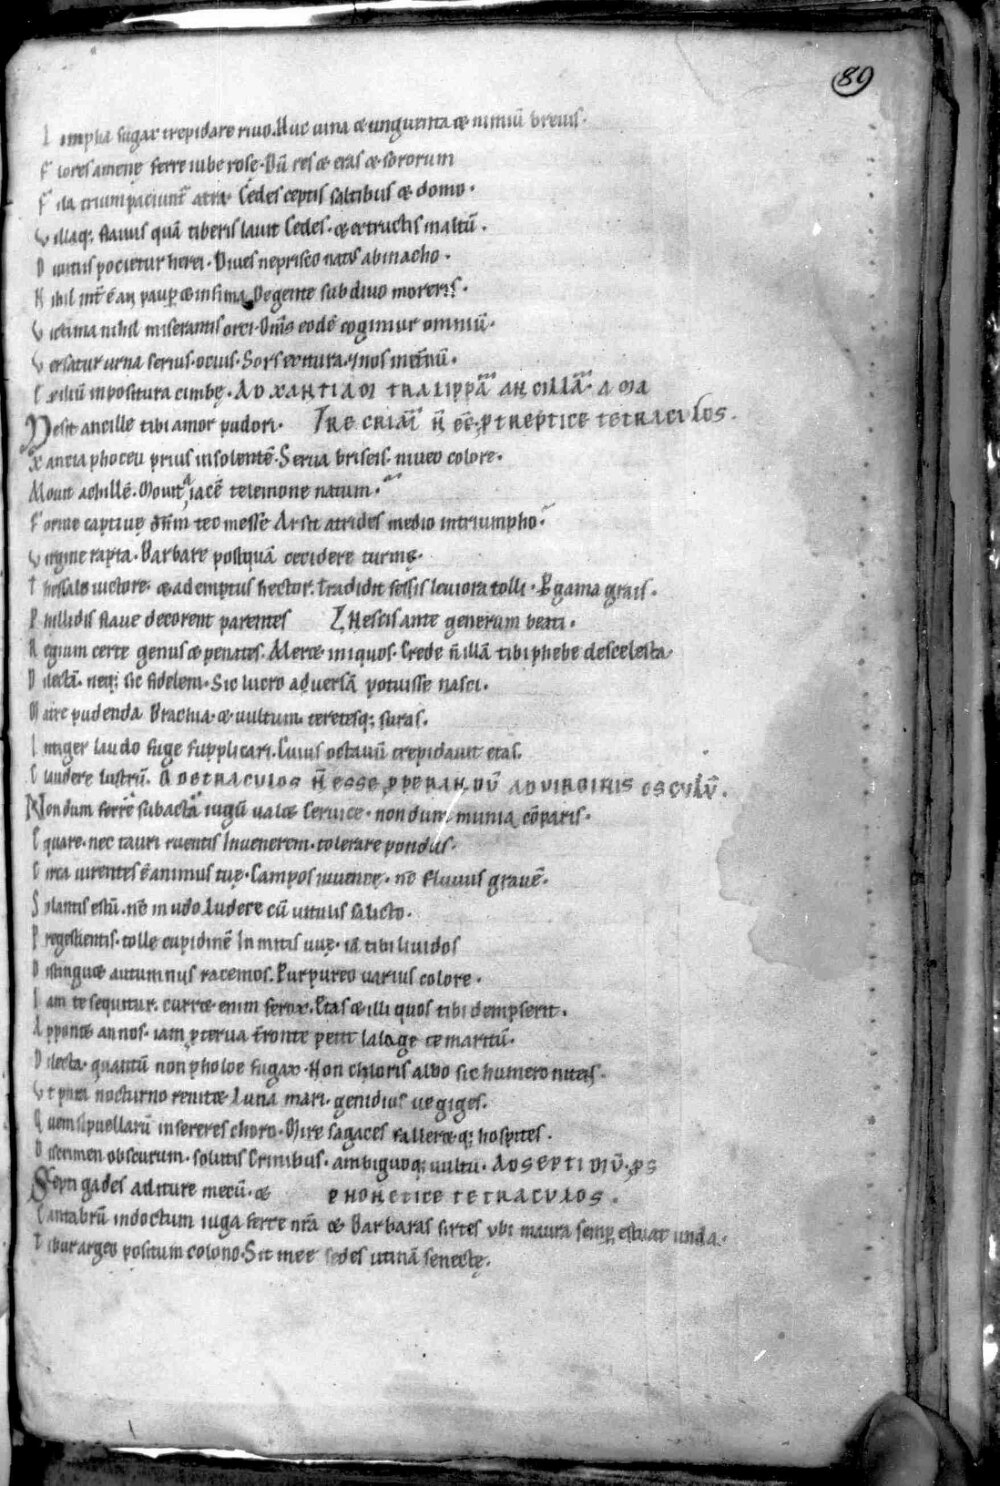 89
Limpha fugax trepidare riuo. Huc uina & unguenta & nimiū breuis.
Flores amenę ferre iube rose. Dū res & etas & sororum
Fila trium paciunt atra. Cedes ceptis saltibus & domo.
Villaq; flauus quā tiberis lauit Cedes. & extructis inaltū.
Diuitiis pocietur heres. Diues ne prisco natus abinacho.
Nihil int̄ē an paup̄ & infima Degente sub diuo moreris.
Victima nihil miserantis orci. Om̄s eodē cogimur omniū.
Versatur urna serius. ocius. Sors exitura. & nos inet̄nū.
Exiliū inpositura cimbę. AD XANTIAM TRALIPPĀ ANCILLĀ. AMA
Ne sit ancille tibi amor pudori. TRE CRIAR̄ N̄ EĒ; PTREPTICE TETRACULOS.
Xantia phoceu prius insolentē. Serua briseis. niueo colore.
Mouit achillē. Mouit aiacē telemone natum.
Forme captiuę dn̄m tecmesse Arsit atrides medio intriumpho.
Virgine rapta. Barbare postquā cecidere turmę.
Thessalo uictore. & ademptus hector. Tradidit fessis leuiora tolli. Pgama grais.
Phillidis flaue decorent parentes Nescis ante generum beati.
Regium certe genus & penates. Meret iniquos. Crede n̄ illā tibi phebe descelesta
Dilectā. neq; sic fidelem. Sic lucro aduersā potuisse nasci.
Matre pudenda Brachia. & uultum. teretesq; suras.
Integer laudo fuge supplicari. Cuius octauū trepidauit etas.
Claudere lustrū. AD TETRACULOS N̄ ESSE PPERANDŪ AD VIRGINIS OSCULŪ.
Nondum ferre subacta iugū ualet Ceruice. nondum munia cōparis.
Equare. nec tauri ruentis Inuenerem. tolerare pondus.
Circa uirentes ē animus tuę. Campos iuuence. nc̄ fluuiis grauē.
Solantis estū. nc̄ in udo Ludere cū uitulis salicto.
Pregestientis. tolle cupidinē Inmitis uuę. iā tibi liuidos
Distinguet autumnus racemos. Purpureo uarius colore.
Iam te sequitur. curret enim ferox. Etas & illi quos tibi dempserit.
Apponet annos. iam pterua fronte petit lalage te maritū.
Dilecta. quantū non pholoe fugax. Non chloris albo sic humero nitens.
Vt pura nocturno renitet Luna mari. genidius ue giges.
Quem si puellarū insereres choro. Mire sagaces falleret q; hospites.
Discrimen obscurum. solutis Crinibus. ambiguoq; uultu. AD SEPTIMIŪ. PS
Septi gades aditure mecū. & PHONETICE TETRACULOS.
Cantabrū indoctum iuga ferre nr̄a & Barbaras sirtes ubi maura semp̄ estuat unda.
Tibur argeo positum colono. Sit mee sedes utinā senectę.